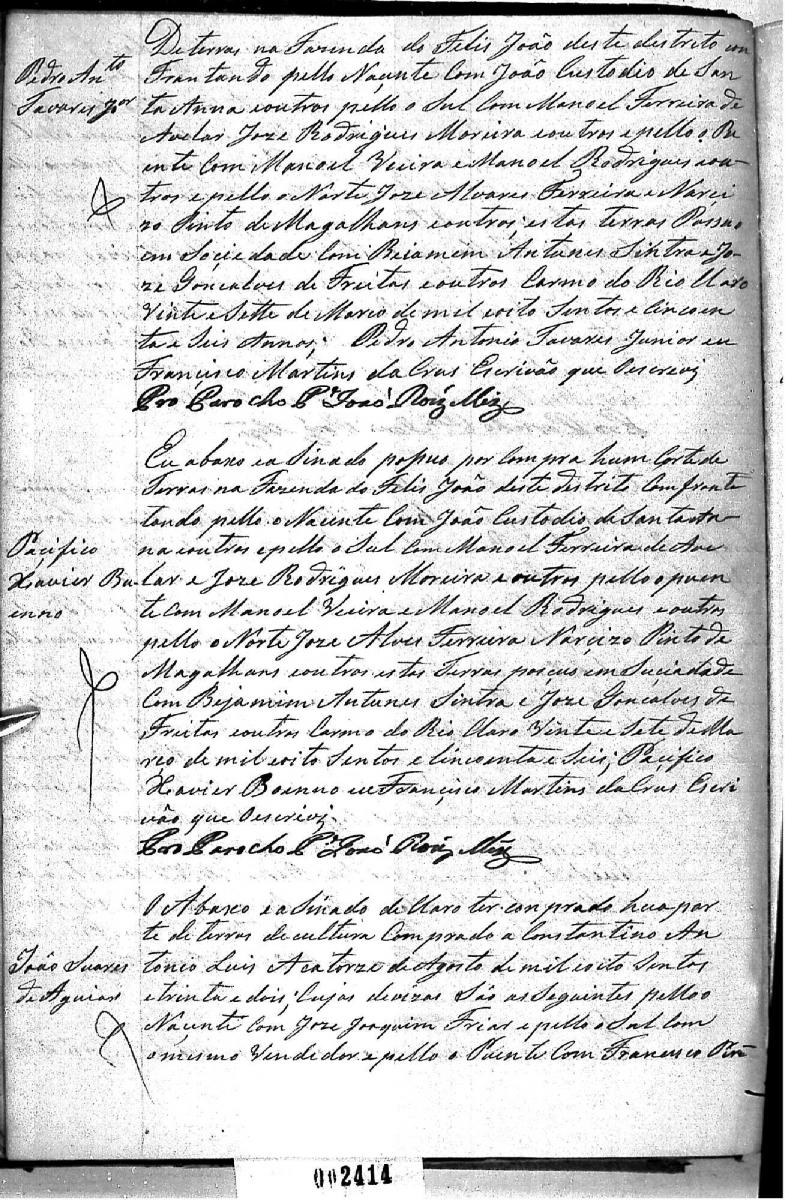 Pedro An.to
Tavares Jor
De terras na Fazenda do Felis João deste destrito con
Frantando pello Naçente Com João Custodio de San
ta Anna eoutros pello o Sul Com Manoel Ferreira de
Avelar Joze Rodrigues Moreira eoutros epello o Pu
ente Com Manoel Vieira e Manoel Rodrigues eou-
tros epello o Norte Joze Alvares Ferreira e Narci
zo Pinto de Magalhans eoutros; estas terras Possuo
em Soçiedade Com Beiamem Antunes Sintra e Jo-
ze Gonçalves de Freitas eoutros Carmo do Rio Claro
Vinte e Sette de Marco de mil eoito Sentos e Cincoen
ta e Seis Annos; Pedro Antonio Tavares Junior eu
Françisco Martins da Crus Escrivão que Oescrevj
Pro Parocho P.e João Roiz Miz
Paçifico
Xavier Bu
enno
Eu abaxo ea Sinado popuo por Compra hum Corte de
Terras na Fazenda do Felis João deste destrito Comfronte
tando pello o Nacente Com João Custodio de Santa An-
na eoutros epello o Sul Com Manoel Ferreira de Ave
lar e Joze Rodrigues Moreira e outros pello opuen
te Com Manoel Vieira e Manoel Rodrigues eoutros
pello o Norte Joze Alves Ferreira Narçizo Pinto de
Magalhans eoutros estas Terras poscuo em Suciadade
Com Bejamim Antunes Sintra e Joze Goncalves de
Freitas eoutros Carmo do Rio Claro Vinte e Sete de Ma
rço de mil eoito Sentos e Cincoenta e Seis; Paçifico
Xavier Boenno eu Françisco Martins da Crus Escri
vão que Oescrevj.
Pro Parocho P.e João Roiz Miz
João Suares
de Aguiar
O Abaxo ea Sinado de Claro ter conprado hua par
te de terras de cultura Comprado a Constantino An
tonio Luis A Catorze de Agosto de mil eoito Sentos
etrinta e dois; Cujas devizas São as Seguintes pello o
Naçente Com Joze Joaquim Friar e pello o Sul Com
omesmo Vendedor e pello o Puente Com Francisco
002414